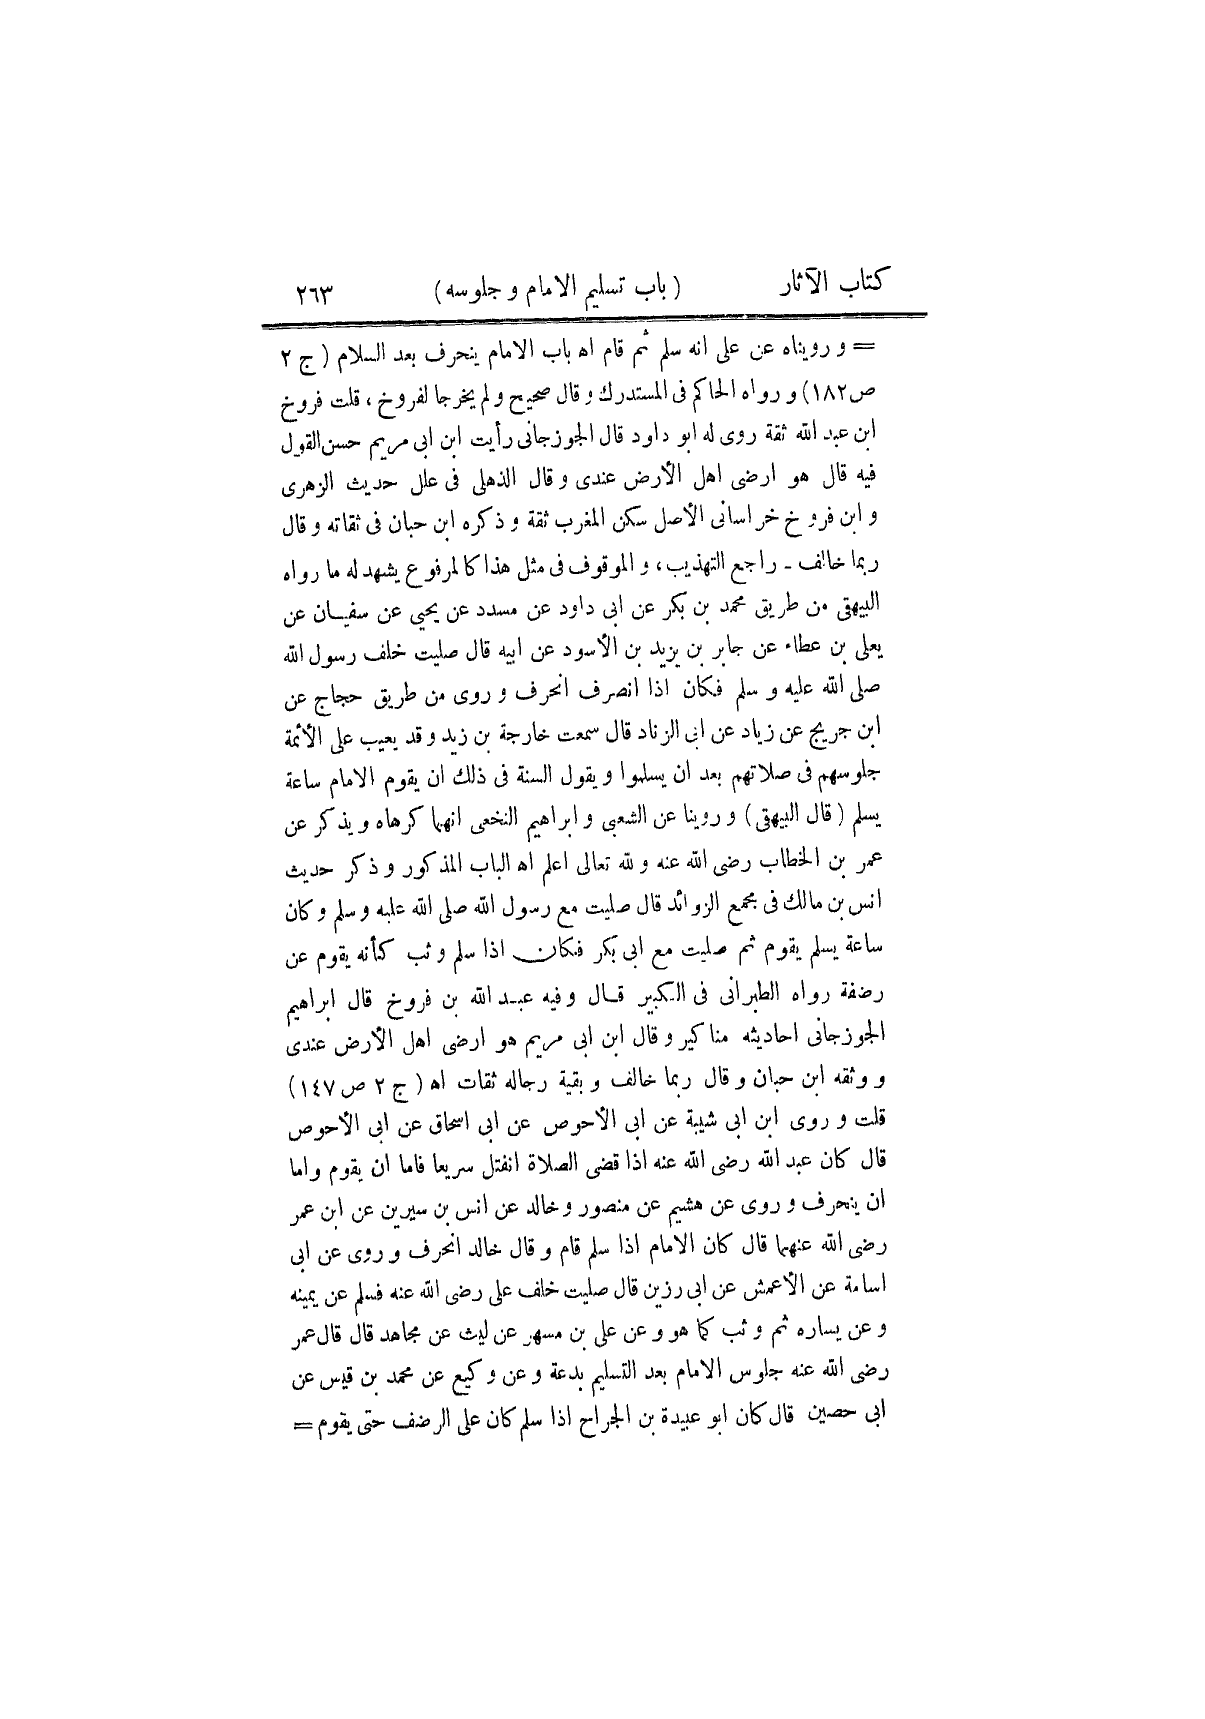 كتاب الآثار (باب تسليم الامام و جلوسه) ٢٦٣
= و رويناه عن على انه سلم ثم قام اه باب الامام ينحرف بعد السلام ( ج ٢
ص ١٨٢) و رواه الحاكم فى المستدرك و قال صحيح و لم يخرجا لفروخ ، قلت فروخ
ابن عبد الله ثقة روى له ابو داود قال الجوزجانى رأيت ابن ابى مريم حسن القول
فيه قال هو ارضى اهل الأرض عندى و قال الذهلى فى علل حديث الزهرى
و ابن فروخ خراسانى الأصل سكن المغرب ثقة و ذكره ابن حبان فى ثقاته و قال
ربما خالف - راجع التهذيب ، و الموقوف فى مثل هذا كالمرفوع يشهد له ما رواه
البيهقى من طريق محمد بن بكر عن ابى داود عن مسدد عن يحيي عن سفيان عن
يعلى بن عطاء عن جابر بن يزيد بن الأسود عن ابيه قال صليت خلف رسول الله
صلى الله عليه و سلم فكان اذا انصرف انحرف و روى من طريق حجاج عن
ابن جريج عن زياد عن ابى الزناد قال سمعت خارجة بن زيد و قد يعيب على الأئمة
جلوسهم فى صلاتهم بعد ان يسلموا و يقول السنة فى ذلك ان يقوم الامام ساعة
يسلم ( قال البيهقى ) و روينا عن الشعبى و ابراهيم النخعى انهما كرهاه و يذكر عن
عمر بن الخطاب رضى الله عنه و لله تعالى اعلم اه الباب المذكور و ذكر حديث
انس بن مالك فى مجمع الزوائد قال صليت مع رسول الله صلى الله عليه و سلم و كان
ساعة يسلم يقوم ثم صليت مع ابى بكر فكان اذا سلم وثب كأنه يقوم عن
رضفة رواه الطبرانى فى الكبير قال وفيه عبد الله بن فروخ قال ابراهيم
الجوزجانى احاديثه مناكير و قال ابن ابى مريم هو ارضى اهل الأرض عندى
و وثقه ابن حبان و قال ربما خالف و بقية رجاله ثقات اه ( ج ٢ ص ١٤٧ )
قلت و روى ابن ابى شيبة عن ابى الأحوص عن ابى اسحاق عن ابى الأحوص
قال كان عبد الله رضى الله عنه اذا قضى الصلاة انفتل سريعا فاما ان يقوم واما
ان ينحرف و روى عن هشيم عن منصور و خالد عن انس بن سيرين عن ابن عمر
رضى الله عنهما قال كان الامام اذا سلم قام و قال خالد انحرف و روى عن ابى
اسامة عن الأعمش عن ابى رزين قال صليت خلف على رضى الله عنه فسلم عن يمينه
و عن يساره ثم وثب كما هو و عن على بن مسهر عن ليث عن مجاهد قال قال عمر
رضى الله عنه جلوس الامام بعد التسليم بدعة و عن وكيع عن محمد بن قيس عن
ابى حصين قال كان ابو عبيدة بن الجراح اذا سلم كان على الرضف حتى يقوم =